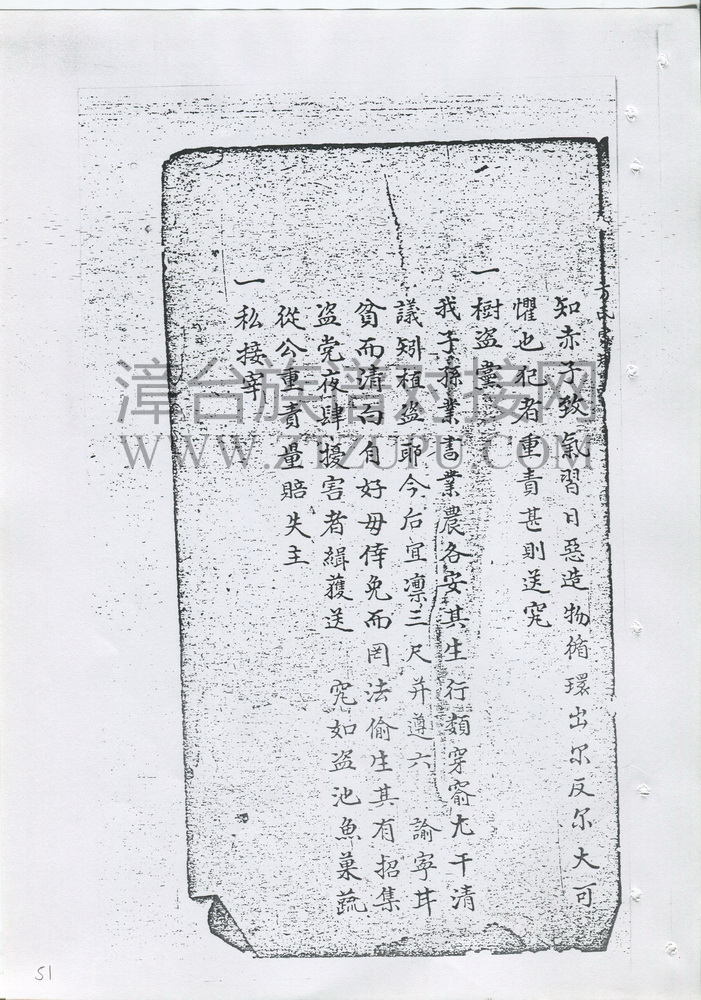 知赤子致氣習日惡造物循環出尔反尔大可
懼也犯者重責甚則送究
一樹盗黨
我子孫業書業農各安其生行類穿窬尤干清
議矧植盗耶今后宜凛三尺并遵六 諭寕甘
貧而清白自好毋倖免而罔法偷生其有招集
盗党夜肆擾害者緝獲送 究如盗池魚菓蔬
從公重責量賠失主
一私接宰
漳台族谱对接网
WWW.ZTZUPU.COM
51